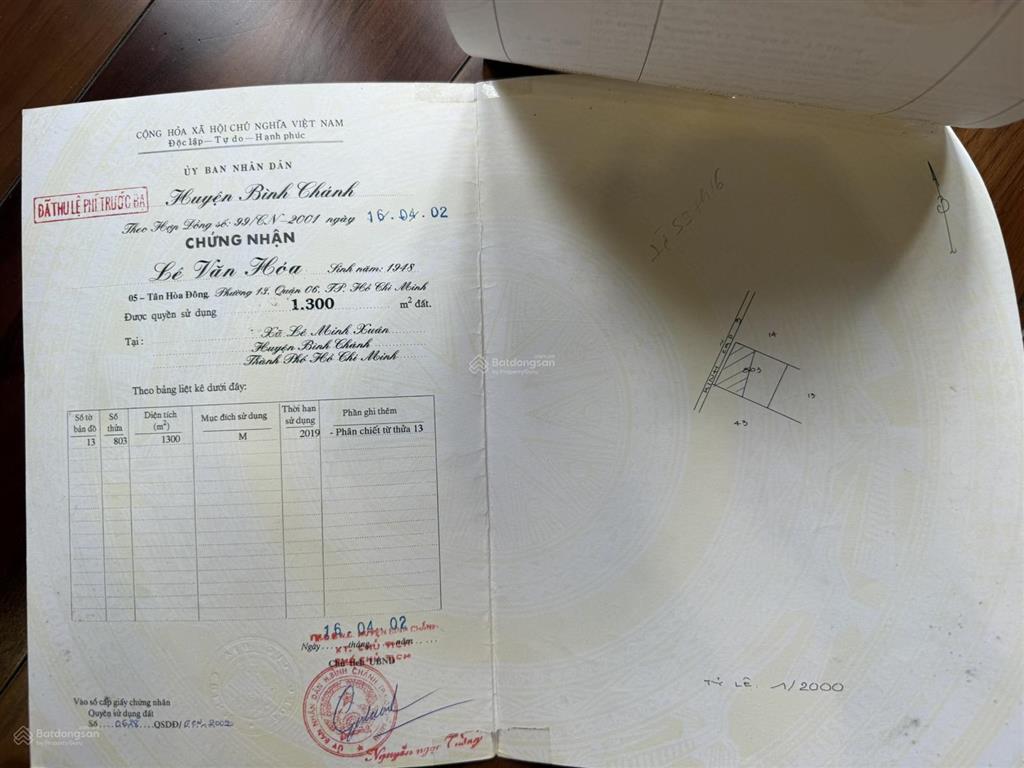 CỘNG HÒA XÃ HỘI CHỦ NGHĨA VIỆT NAM
Độc lập - Tự do - Hạnh phúc
ỦY BAN NHÂN DÂN
Huyện Bình Chánh
ĐÃ THU LỆ PHÍ TRƯỚC BẠ
Theo Hợp Đồng số: 99/CN-2001 ngày 16.04.02
CHỨNG NHẬN
Lê Văn Hóa Sinh năm: 1948
05 - Tân Hòa Đông, Phường 13, Quận 06, TP. Hồ Chí Minh
Được quyền sử dụng 1.300 m² đất.
Tại: Xã Lê Minh Xuân
Huyện Bình Chánh
Thành Phố Hồ Chí Minh
Theo bảng liệt kê dưới đây:
Số tờ bản đồ Số thửa Diện tích (m²) Mục đích sử dụng Thời hạn sử dụng Phần ghi thêm
13 803 1300 M 2019 - Phân chiết từ thửa 13
16.04.02
Ngày tháng năm
KT. CHỦ TỊCH
PHÓ CHỦ TỊCH
Chủ tịch UBND
Nguyễn Ngọc Tưởng
Vào sổ cấp giấy chứng nhận
Quyền sử dụng đất
Số QSDĐ/
14
803
13
43
TỶ LỆ 1/2000
Batdongsan
by PropertyGuru
Batdongsan
by PropertyGuru
Batdongsan
by PropertyGuru